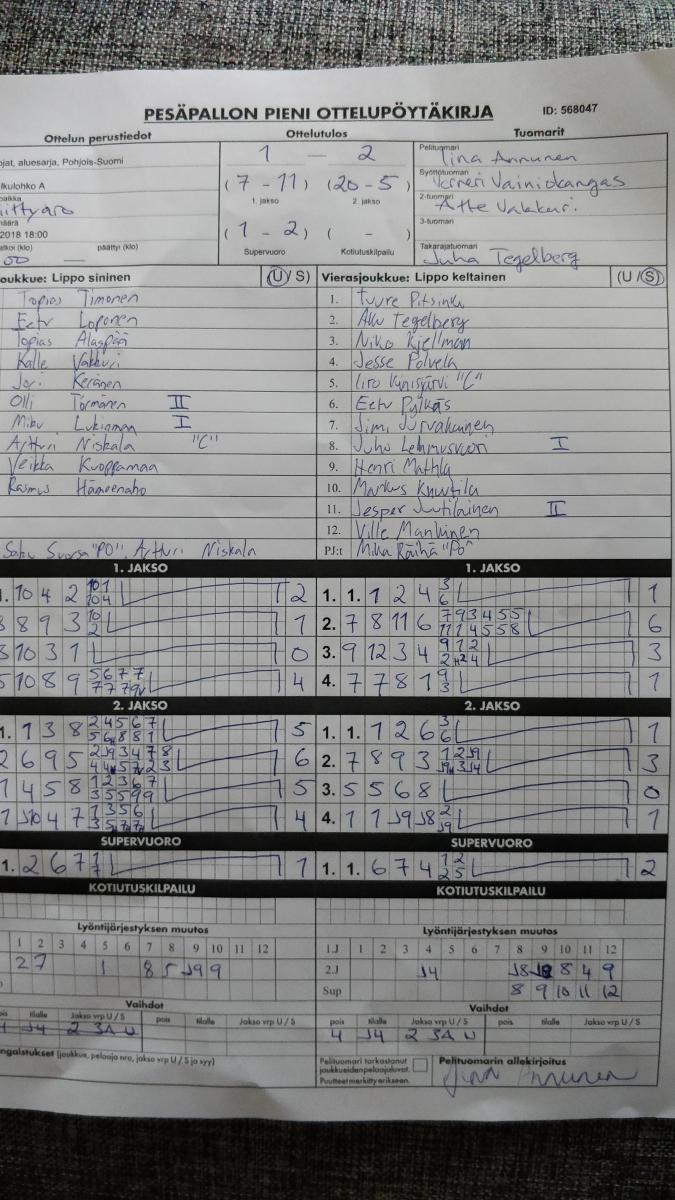 PESÄPALLON PIENI OTTELUPÖYTÄKIRJA ID: 568047
Ottelun perustiedot Ottelutulos Tuomarit
ojat, aluesarja, Pohjois-Suomi
1 — 2
Pelituomari
Iina Annunen
lkulohko A
(7 - 11) (20 - 5)
1. jakso 2. jakso
Syöttötuomari
Vainiokangas
paikka
2-tuomari
Atte Vakkuri
määrä
2018 18:00
(1 - 2) ( - )
3-tuomari
alkoi (klo) päättyi (klo)
00 —
Supervuoro Kotiutuskilpailu
Takarajatuomari
Juha Tegelberg
oukkue: Lippo sininen (U / S) Vierasjoukkue: Lippo keltainen (U / S)
Topias Timonen 1. Tuure Pitsinki
Eetu Loponen 2. Aku Tegelberg
Topias Alaspää 3. Niko Kjellman
Kalle Vakkuri 4. Jesse Polvela
Joni Keränen 5. Iiro "C"
Olli Törmänen II 6. Eetu Pylkäs
Miku Lukinmaa I 7. Jimi Jurvakainen
Artturi Niskala "C" 8. Juho Lehmusvuori I
Veikka Kuoppamaa 9. Henri Mattila
Rasmus Hämeenaho 10. Markus Knuutila
11. Jesper Juutilainen II
12. Ville Manninen
Saku Suorsa "PO", Artturi Niskala PJ:t Mika Räihä "PO"
1. JAKSO 1. JAKSO
1. 10 4 2 10 1 2 1. 1. 1 2 4 3 1
10 4 6
8 8 9 3 10 1 2. 7 8 11 6 7 9 3 4 5 5 6
2 11 1 4 5 5 8
3 10 3 1 0 3. 9 12 3 4 9 1 2 3
5 10 8 9 5 6 7 7 4 4. 7 7 8 1 9 1
3
2. JAKSO 2. JAKSO
1. 1 3 8 2 4 5 6 7 5 1. 1. 1 2 6 3 1
6
2 6 9 5 6 2. 7 8 9 3 3
1 4 5 8 1 2 3 6 7 5 3. 5 5 6 8 0
3 5 5 9 9
1 J10 4 7 1 3 5 6 4 4. 1 1 J9 J8 2 1
J9
SUPERVUORO SUPERVUORO
1. 2 6 7 1 1. 1. 6 7 4 1 2 2
2 5
KOTIUTUSKILPAILU KOTIUTUSKILPAILU
Lyöntijärjestyksen muutos Lyöntijärjestyksen muutos
1 2 3 4 5 6 7 8 9 10 11 12 1.J 1 2 3 4 5 6 7 8 9 10 11 12
2 7 1 8 5 J9 9 2.J J4 J8 8 4 9
Sup 8 9 10 11 12
Vaihdot Vaihdot
pois tilalle Jakso vrp U / S pois tilalle Jakso vrp U / S pois tilalle Jakso vrp U / S pois tilalle Jakso vrp U / S
J4 2 3A U 4 J4 2 3A U
ngaistukset (joukkue, pelaaja nro, jakso vrp U / S ja syy)
Pelituomari tarkastanut
joukkueiden pelaajaluvat.
Puutteet merkitty erikseen.
Pelituomarin allekirjoitus
Iina Annunen